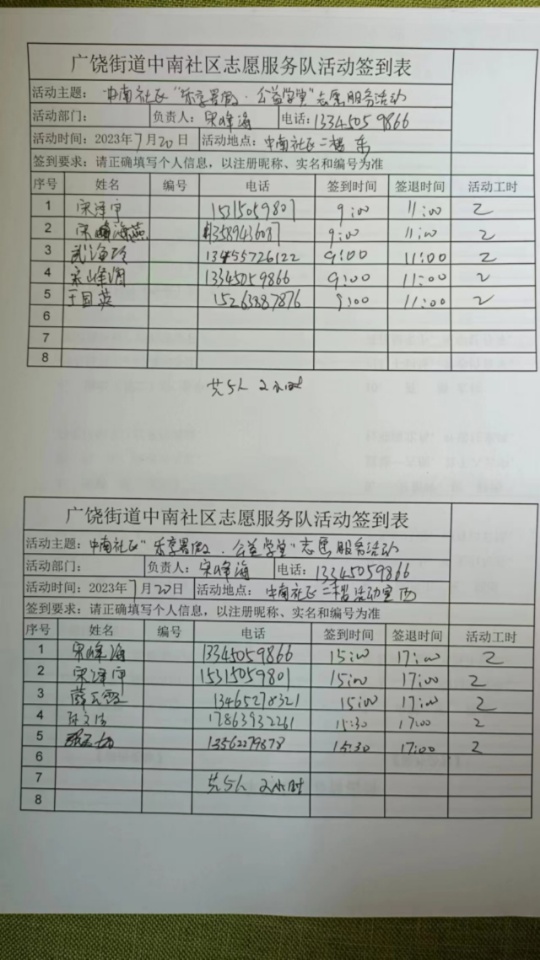 广饶街道中南社区志愿服务队活动签到表
活动主题：中南社区“乐享暑假·公益学堂”志愿服务活动
活动部门： 负责人：宋峰海 电话：13345059866
活动时间：2023年7月20日 活动地点：中南社区二楼 东
签到要求：请正确填写个人信息，以注册昵称、实名和编号为准
序号 姓名 编号 电话 签到时间 签退时间 活动工时
1 宋泽宇 15315059801 9:00 11:00 2
2 9:00 11:00 2
3 武海玲 13455726122 9:00 11:00 2
4 宋峰海 13345059866 9:00 11:00 2
5 于国英 15263887876 9:00 11:00 2
6
7
8
共5人 2小时
广饶街道中南社区志愿服务队活动签到表
活动主题：中南社区“乐享暑假·公益学堂”志愿服务活动
活动部门： 负责人：宋峰海 电话：13345059866
活动时间：2023年7月20日 活动地点：中南社区二楼活动室西
签到要求：请正确填写个人信息，以注册昵称、实名和编号为准
序号 姓名 编号 电话 签到时间 签退时间 活动工时
1 宋峰海 13345059866 15:00 17:00 2
2 宋泽宇 15315059801 15:00 17:00 2
3 13465278321 15:00 17:00 2
4 17863932261 15:30 17:00 2
5 13562279878 15:30 17:00 2
6
7 共5人 2小时
8